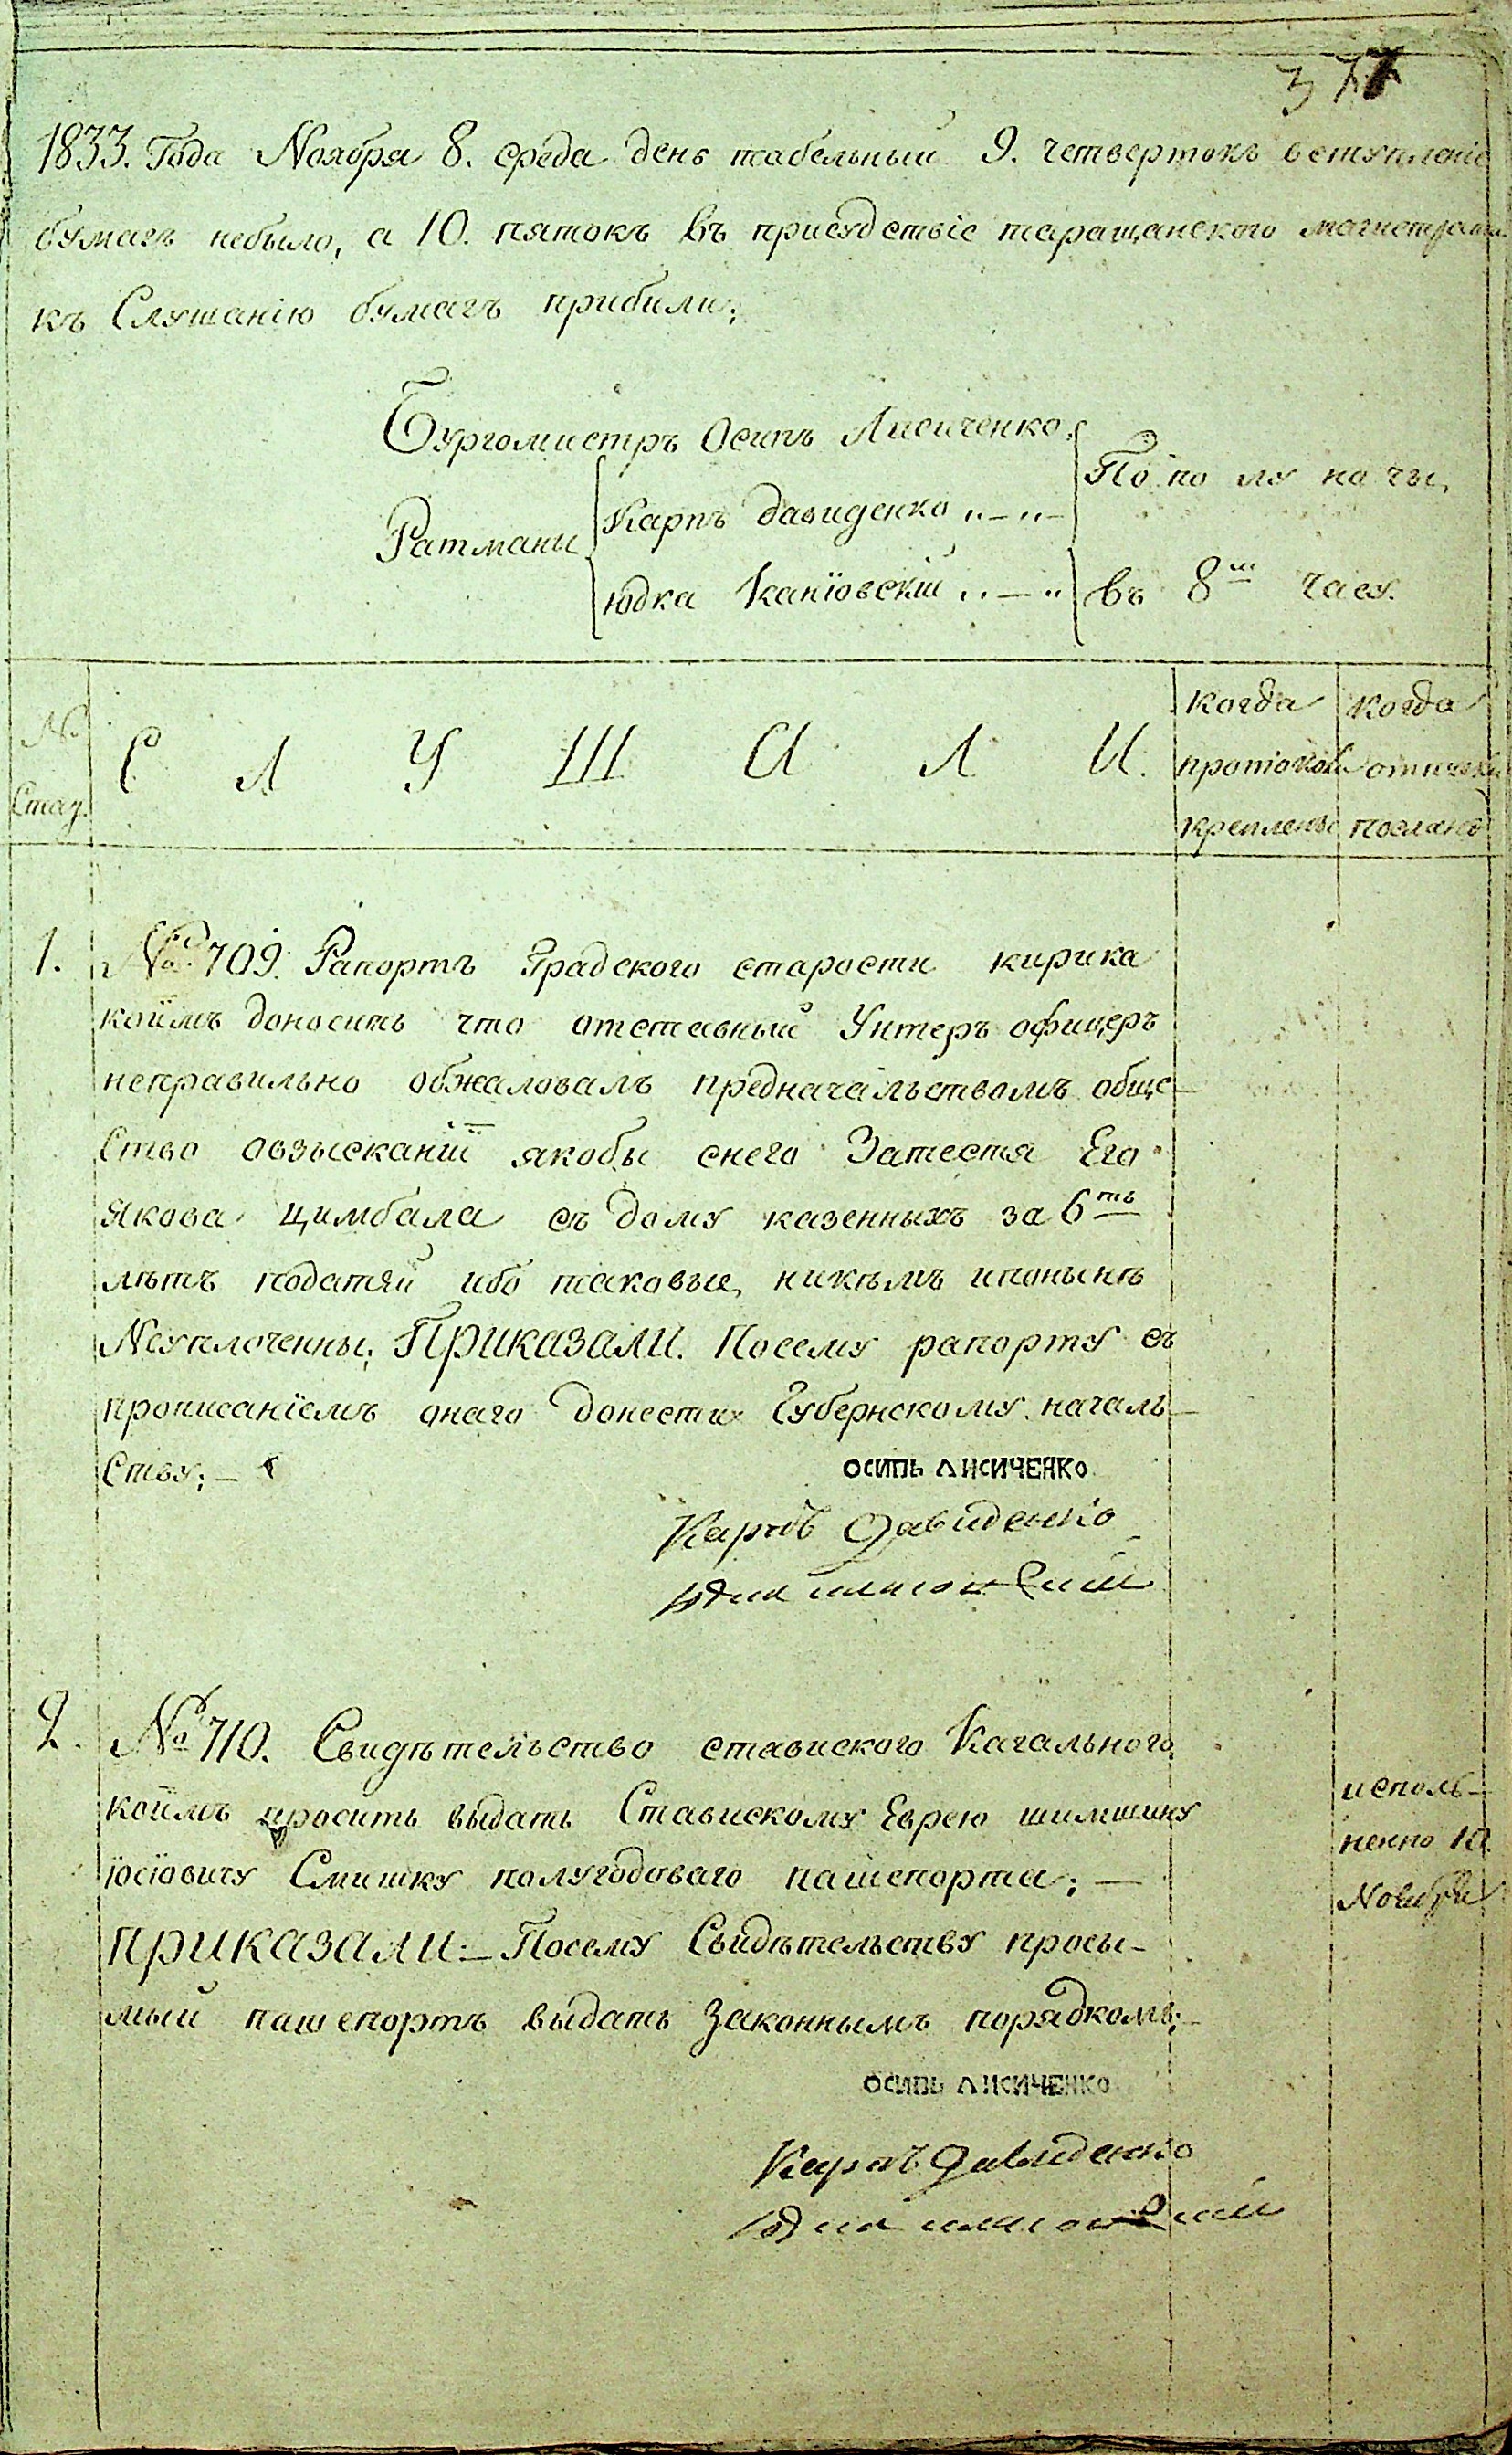 377
1833. Года Ноября 8. среда день табельный 9. четвертокъ вступленіе
бумагъ небыло, а 10. пятокъ въ присудствіе таращанского магистрата
къ Слушанію бумагъ прибили;
Бургомистръ Осипъ Лисиченко.
По по лу на чы,
Карпъ давиденко „—„—
Ратманы
юдка Канїовскій „—„
въ 8м часу.
№ Стат.
С Л У Ш А Л И.
когда протокол крепленъ
когда отпуски посланы
1. № 709. Рапортъ Градского старости кирика
коимъ доноситъ что отставный Унтеръ офицеръ
неправильно обжаловалъ предначальствомъ обще-
Ство овзысканіи якобы снего Затестя Его
Якова цимбала съ дому казенныхъ за 6ть
лѣтъ податяй ибо таковые, никѣмъ ипонынѣ
Неуплоченны; ПРИКАЗАЛИ. Посему рапорту съ
прописанїемъ онаго донести Губернскому началь-
Ству; —
ОСИПЬ ЛИСИЧЕНКО
Карпъ Давиденко
2. № 710. Свидѣтельство ставиского Кагального
коимъ проситъ выдать Ставискому Еврею шимшину
їосїовичу Смишку полугодоваго пашепорта; —
исполь-
ненно 10
Ноября
ПРИКАЗАЛИ: — Посему Свидѣтельству просы-
мый пашепортъ выдать Законнымъ порядкомъ; —
ОСИПЬ ЛИСИЧЕНКО
Карпъ Давиденко